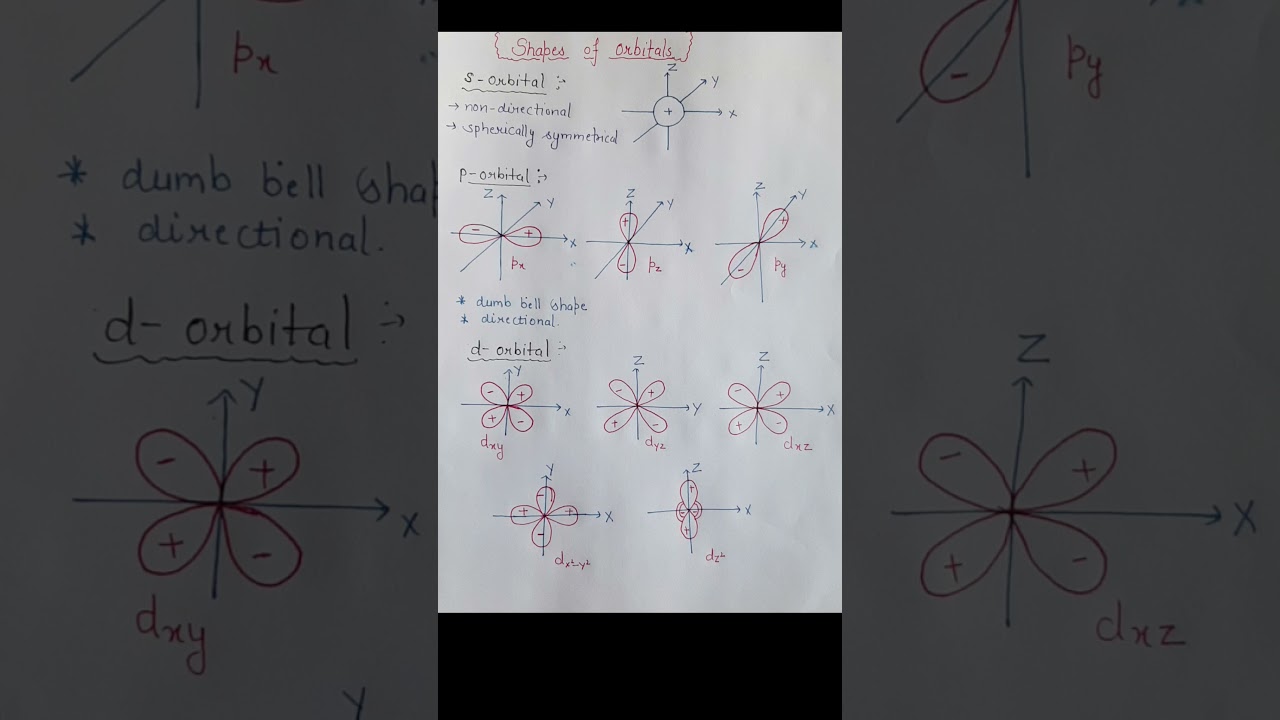 Shapes of orbitals
s-orbital :-
→ non-directional
→ spherically symmetrical
Z
Y
X
+
p-orbital :-
Z Y X - + px
Z Y X + - pz
Z Y X + - py
* dumb bell shape
* directional.
d-orbital :-
Y X - + + - dxy
Z Y - + + - dyz
Z X - + + - dxz
Y X - + + - dx²-y²
Z X + - - + dz²
px
* dumb bell sha
* directional.
d-orbital :-
Y
- +
X
+ -
dxy
Y
-
py
Z
- +
X
+ -
dxz